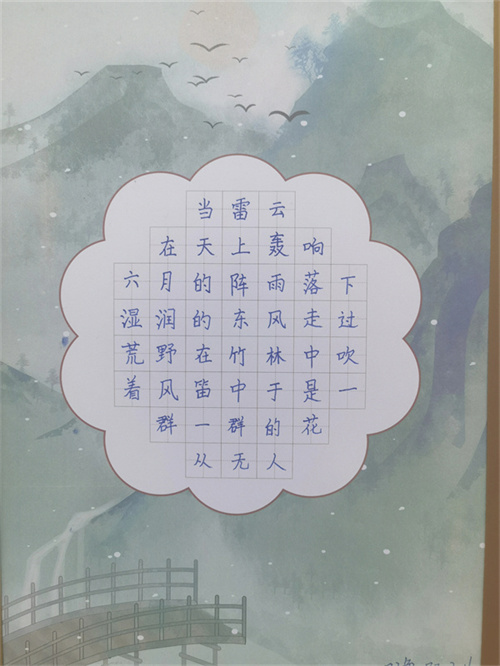 当雷云
在天上轰响
六月的阵雨落下
湿润的东风走过
荒野在竹林中吹
着风笛中于是一
群一群的花
从无人